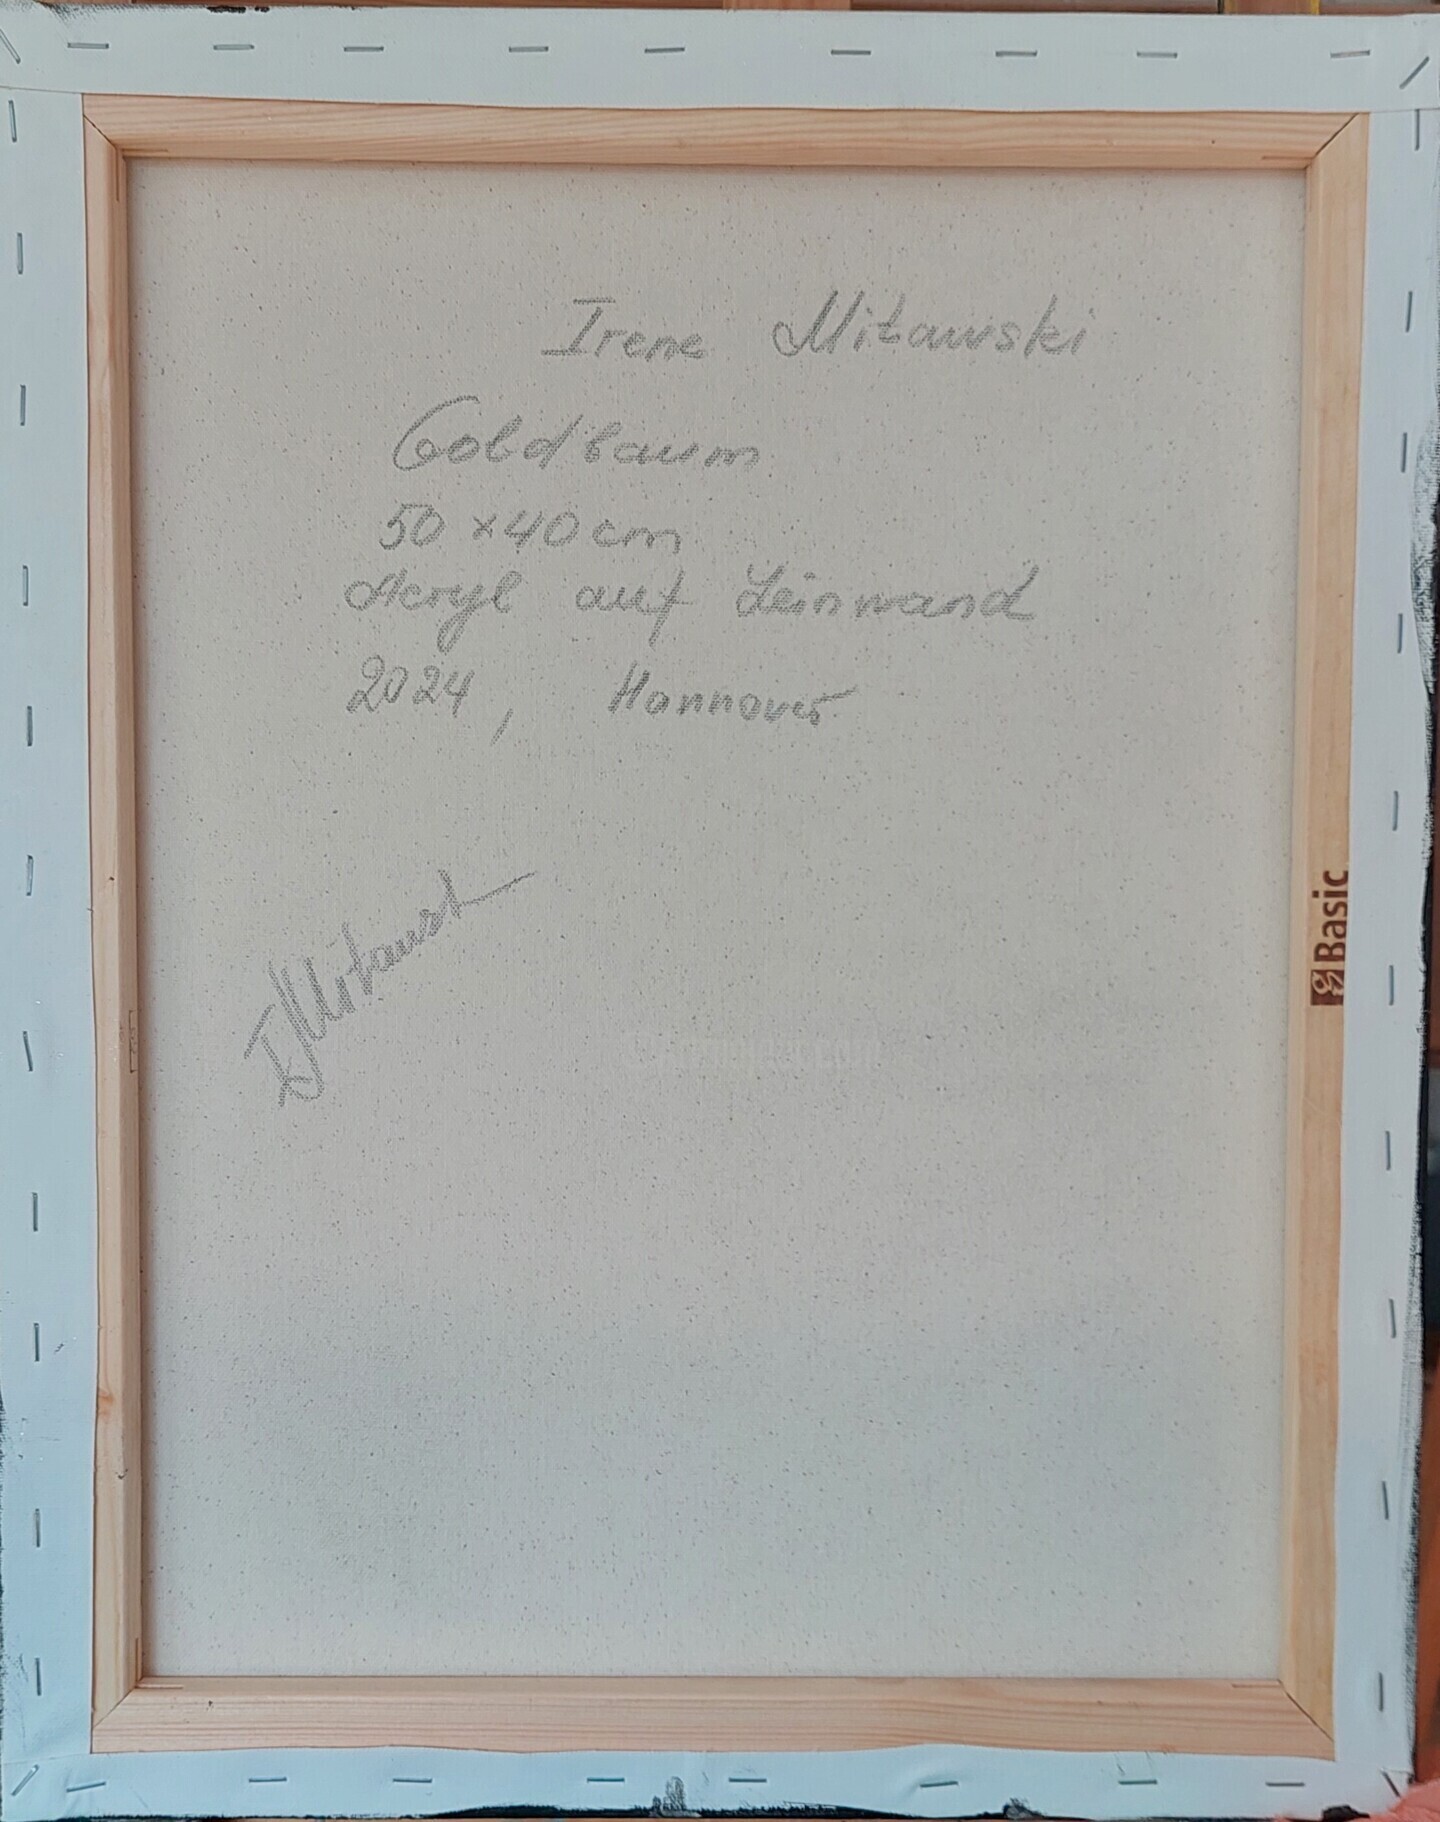 Irene Mitawski
Goldbaum
50 x 40 cm
Acryl auf Leinwand
2024, Hannover
I Mitawski
Basic